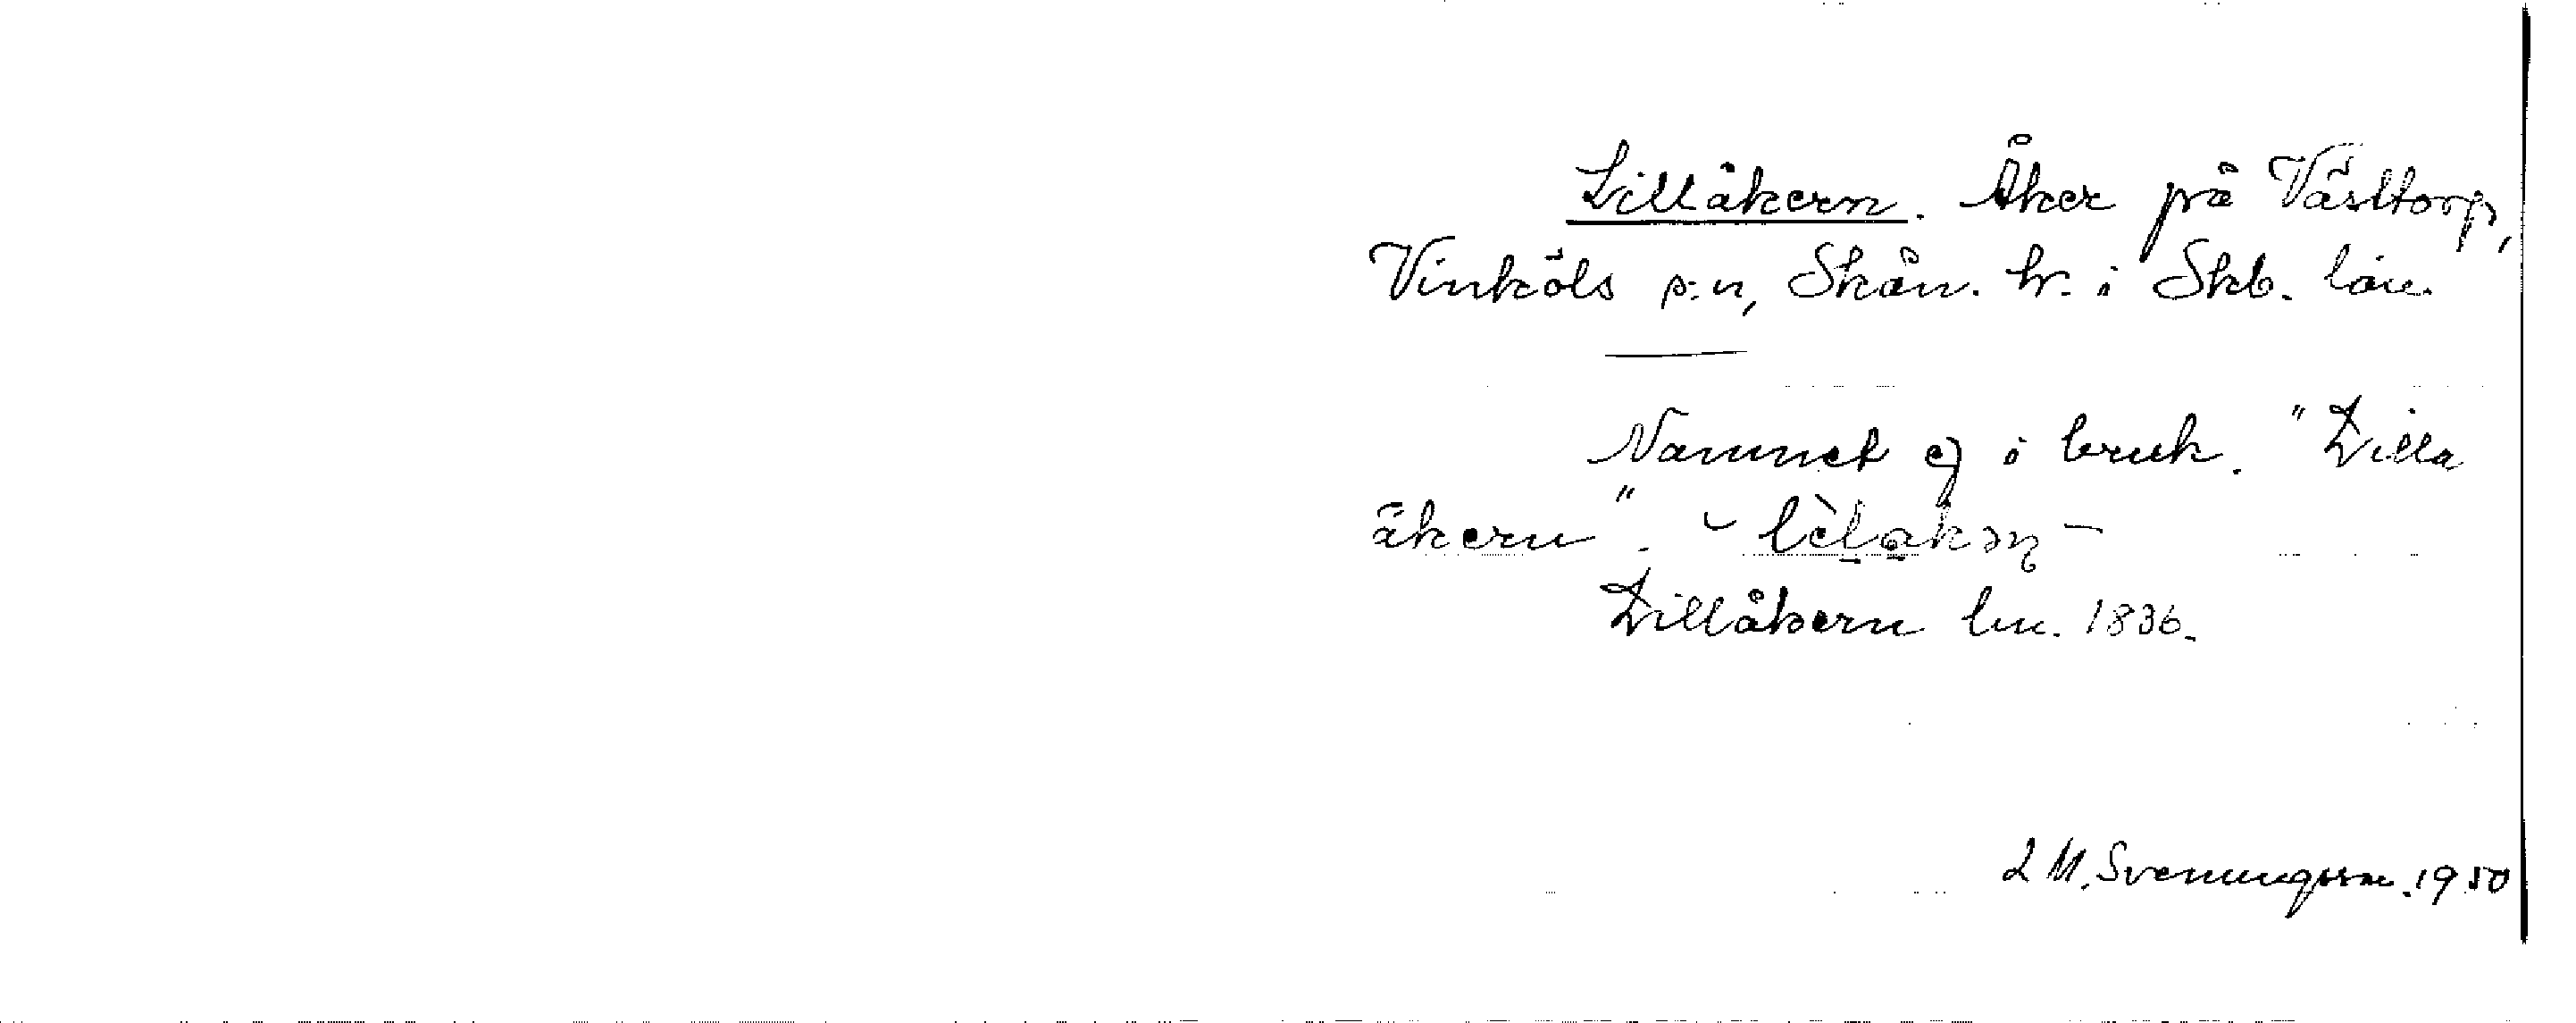 Lillåkern. Åker på Västtorp,
Vinköls s:n, Skån. hr. i Skb. län.
Namnet ej i bruk. "Lilla
åkern". - lèlakəɳ -
Lillåkern lm. 1836.
L M. Svenungsson. 1950